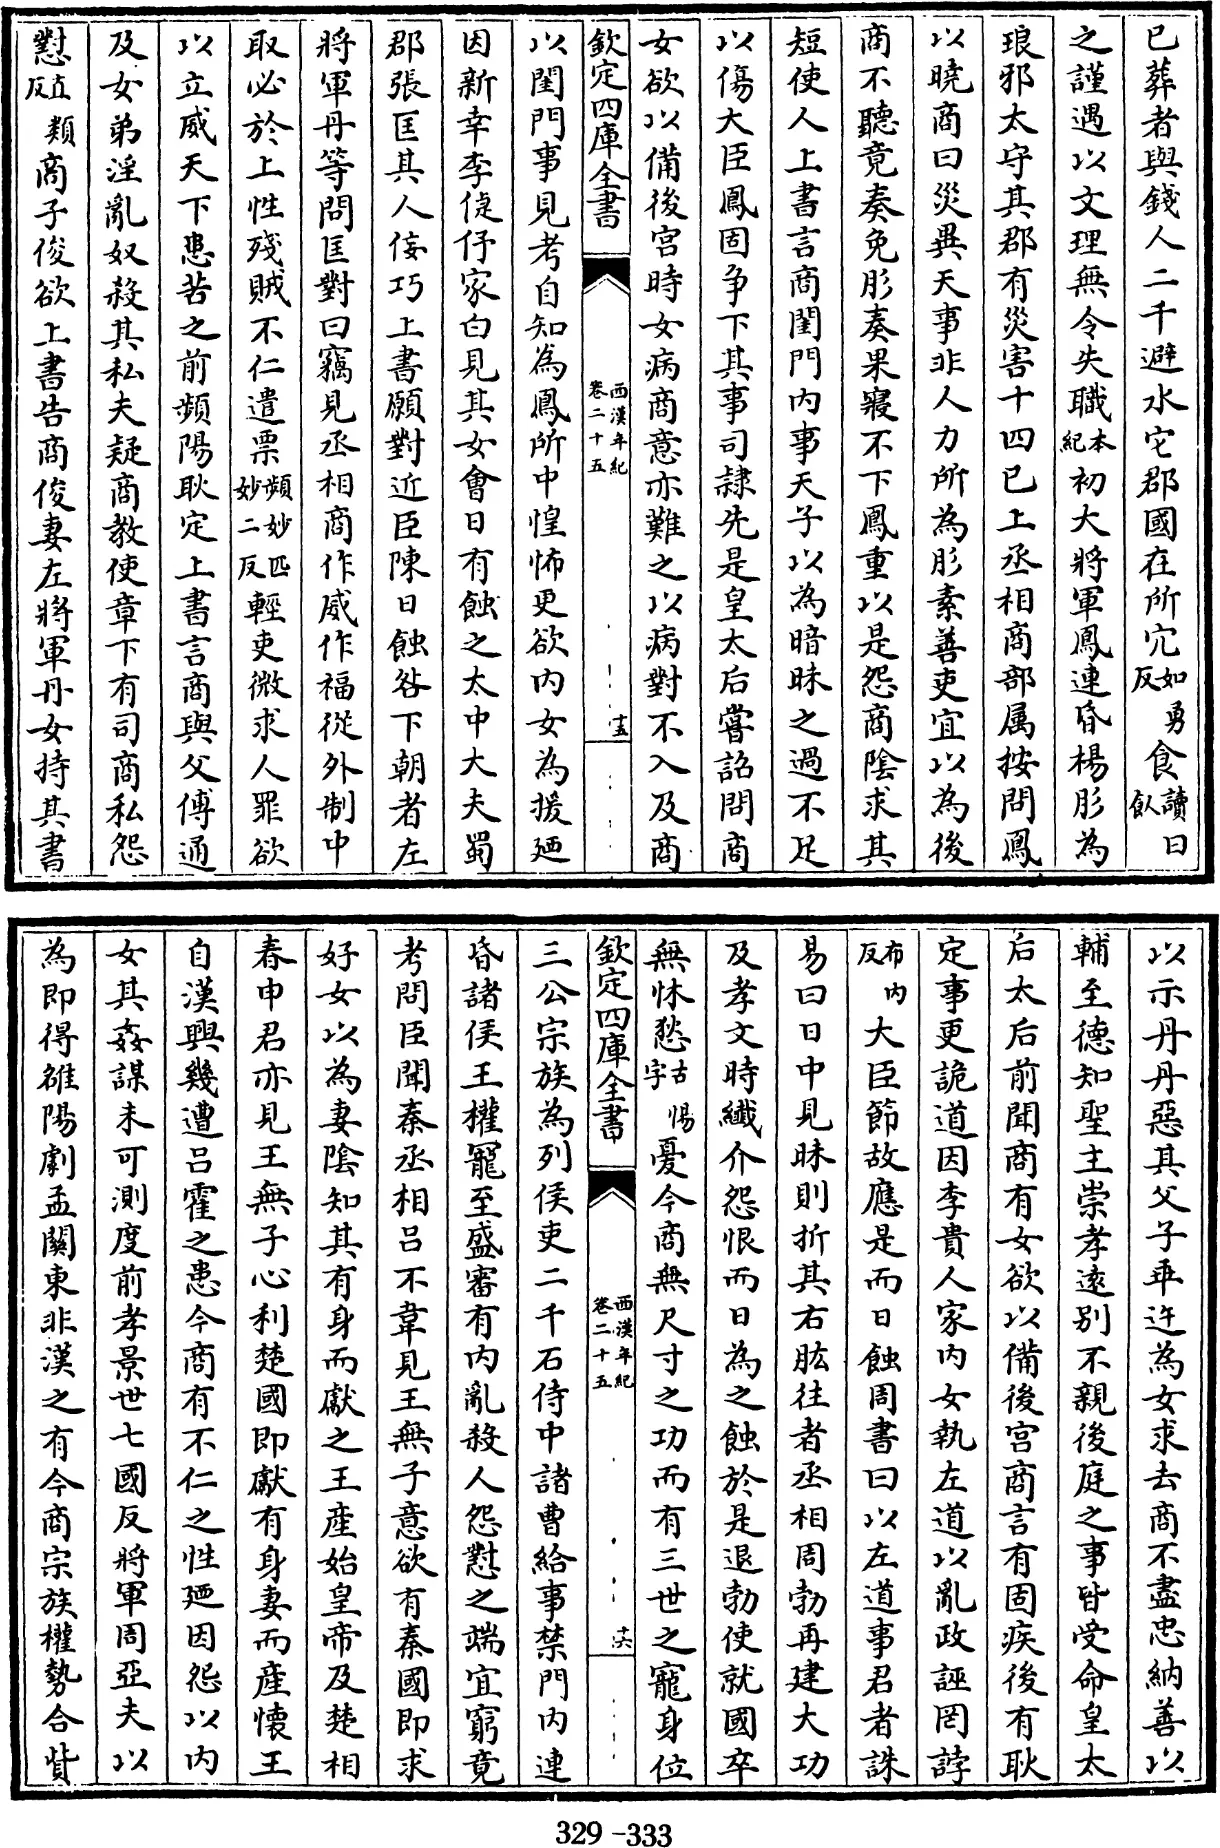 已葬者與錢人二千避水它郡國在所宂如勇反食讀曰飤
之謹遇以文理無令失職本紀初大將軍鳳連昏楊肜為
琅邪太守其郡有災害十四已上丞相商部屬按問鳳
以曉商曰災異天事非人力所為肜素善吏宜以為後
商不聽竟奏免肜奏果寢不下鳳重以是怨商陰求其
短使人上書言商閨門内事天子以為暗昧之過不足
以傷大臣鳳固争下其事司隸先是皇太后嘗詔問商
女欲以備後宫時女病商意亦難之以病對不入及商
欽定四庫全書
西漢年紀
卷二十五
十五
以閨門事見考自知為鳳所中惶怖更欲内女為援廼
因新幸李倢伃家白見其女會日有蝕之太中大夫蜀
郡張匡其人佞巧上書願對近臣陳日蝕咎下朝者左
將軍丹等問匡對曰竊見丞相商作威作福從外制中
取必於上性殘賊不仁遣票頻妙匹妙二反輕吏微求人罪欲
以立威天下患苦之前頻陽耿定上書言商與父傅通
及女弟淫亂奴殺其私夫疑商教使章下有司商私怨
懟直類反商子俊欲上書告商俊妻左將軍丹女持其書
以示丹丹惡其父子乖迕為女求去商不盡忠納善以
輔至德知聖主崇孝遠别不親後庭之事皆受命皇太
后太后前聞商有女欲以備後宫商言有固疾後有耿
定事更詭道因李貴人家内女執左道以亂政誣罔誖
布内反大臣節故應是而日蝕周書曰以左道事君者誅
易曰日中見昧則折其右肱往者丞相周勃再建大功
及孝文時纎介怨恨而日為之蝕於是退勃使就國卒
無怵愁古惕字憂今商無尺寸之功而有三世之寵身位
欽定四庫全書
西漢年紀
卷二十五
十六
三公宗族為列侯吏二千石侍中諸曹給事禁門内連
昏諸侯王權寵至盛審有内亂殺人怨懟之端宜窮竟
考問臣聞秦丞相吕不韋見王無子意欲有秦國即求
好女以為妻陰知其有身而獻之王産始皇帝及楚相
春申君亦見王無子心利楚國即獻有身妻而産懷王
自漢興幾遭吕霍之患今商有不仁之性廼因怨以内
女其姦謀未可測度前孝景世七國反將軍周亞夫以
為即得雒陽劇孟關東非漢之有今商宗族權勢合貲
329-333